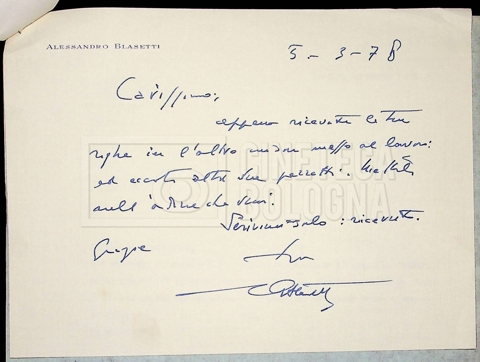 ALESSANDRO BLASETTI
5 - 3 - 78
Carissimo,
appena ricevute le tue
righe in l'altro mi son messo al lavoro:
ed eccoti altri due pezzetti. Mettili
nell'ordine che vuoi.
Scrivimi solo: ricevuto.
Grazie
tuo
Blasetti
CINETECA
BOLOGNA